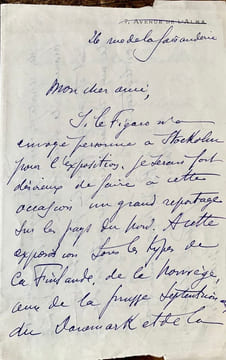 7, AVENUE DE L'ALMA
26 rue de la faisanderie
Mon cher ami,
Si le Figaro n'a
envoyé personne à Stockholm
pour l'exposition, je serais fort
désireux de faire à cette
occasion un grand reportage
sur les pays du nord. A cette
exposition tous les types de
la Finlande, de la Norvège,
ceux de la prusse septentrion
du Danemark et de la